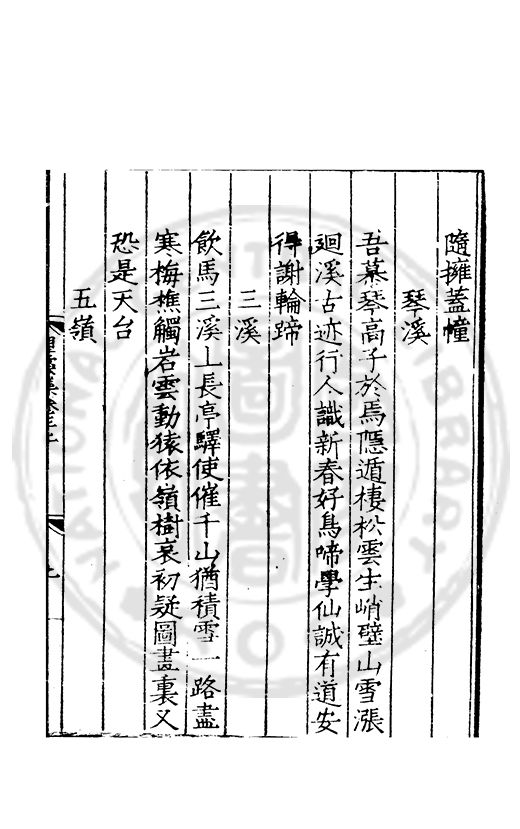 隨擁蓋幢
琴溪
吾慕琴高子於焉隱遁棲松雲生峭壁山雪漲
迴溪古迹行人識新春好鳥啼學仙誠有道安
得謝輪蹄
三溪
飲馬三溪上長亭驛使催千山猶積雪一路盡
寒梅樵觸岩雲動猿依嶺樹哀初疑圖畫裏又
恐是天台
五嶺